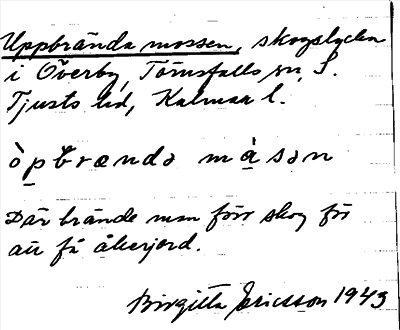 Uppbrända mossen, skogslycka
i Överby, Törnsfalls sn, S.
Tjusts hd, Kalmar l.
òp̱brændə mạ̀sən
Där brände man förr skog för
att få åkerjord.
Birgitta Ericsson 1943